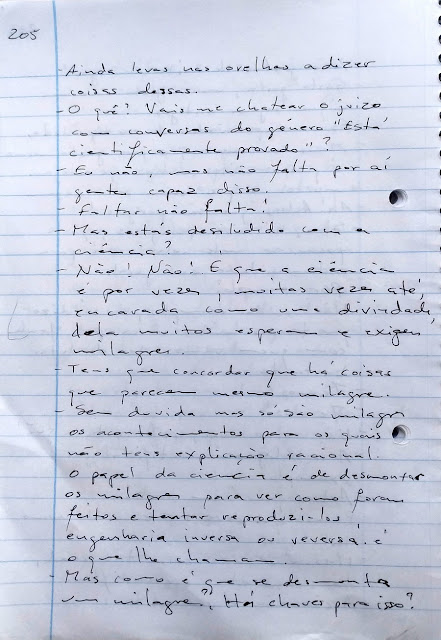 205
- Ainda levas nas orelhas a dizer
coisas dessas.
- O quê? Vais me chatear o juízo
com conversas do género "Está
cientificamente provado"?
- Eu não, mas não falta por aí
gente capaz disso!
- Faltar não falta!
- Mas estás desiludido com a
ciência?
- Não! Não! E que a ciência
é por vezes, muitas vezes até,
encarada como uma divindade,
dela muitos esperam e exigem
milagres.
- Tens que concordar que há coisas
que parecem mesmo milagre.
- Sem duvida mas só são milagre
os acontecimentos para os quais
não tens explicação racional.
O papel da ciencia é de desmontar
os milagres para ver como foram
feitos e tentar reproduzi-los,
engenharia inversa ou reversa é
o que lhe chamam.
- Mas como é que se desmonta
um milagre? Há chaves para isso?